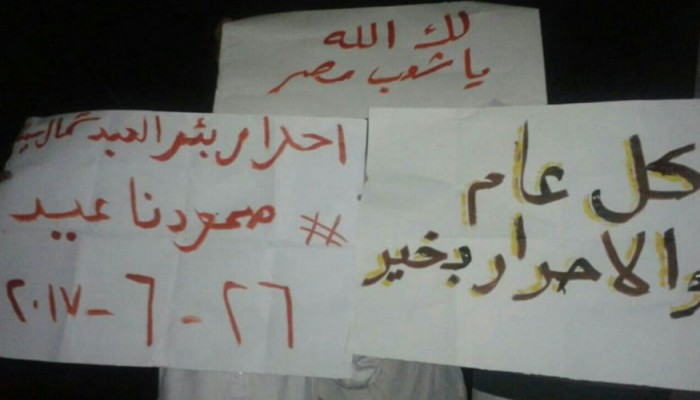 لك الله
يا شعب مصر
احرار بئر العبد شمال سيـ
# صمودنا عيد
٢٦ - ٦ - ٢٠١٧
كل عام
والاحرار بخير